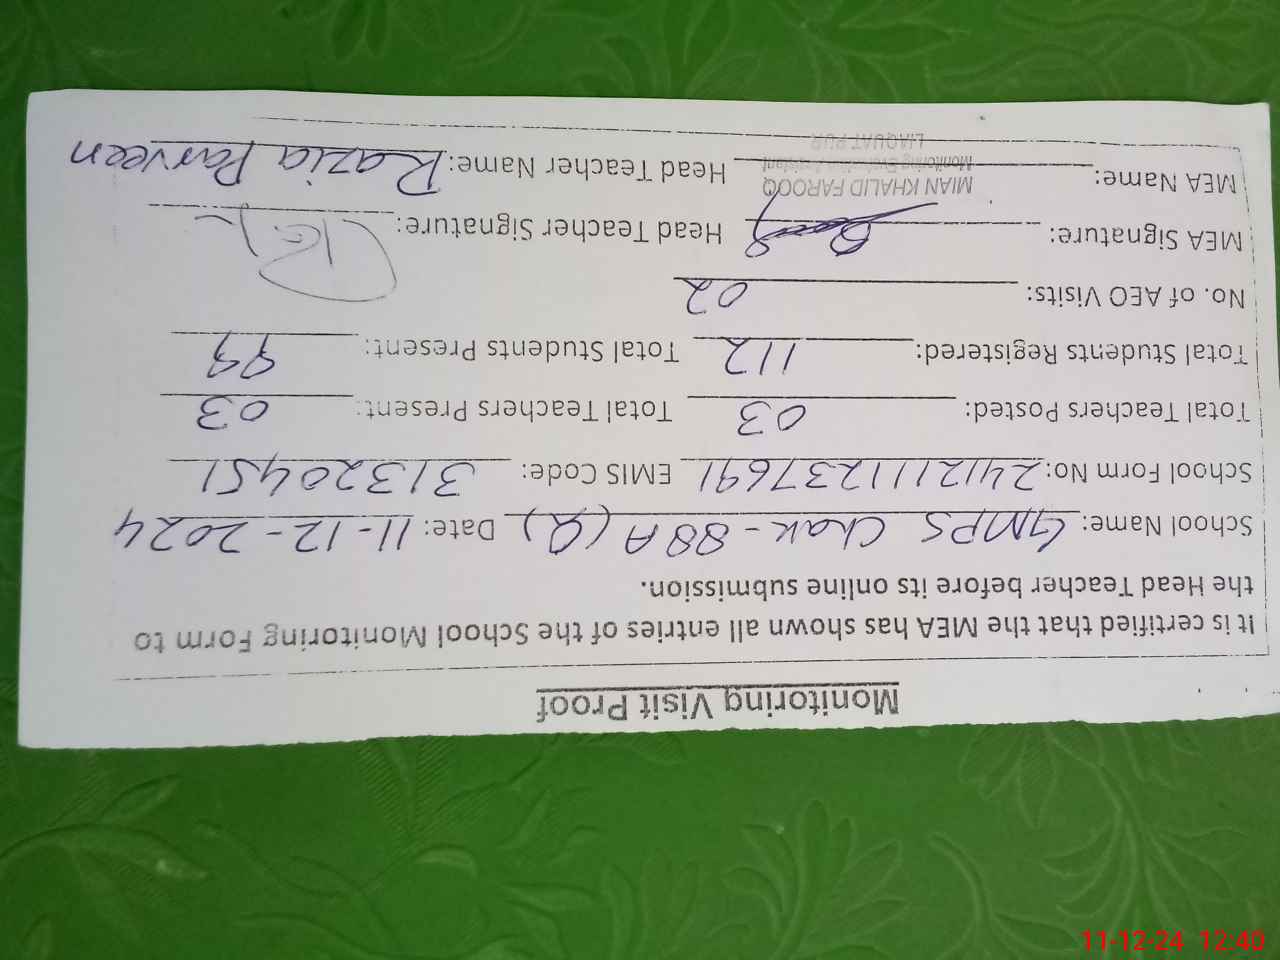 Monitoring Visit Proof
It is certified that the MEA has shown all entries of the School Monitoring Form to
the Head Teacher before its online submission.
School Name: GMPS Chak-88A (Q) Date: 11-12-2024
School Form No: 2412111237691 EMIS Code: 31320451
Total Teachers Posted: 03 Total Teachers Present: 03
Total Students Registered: 112 Total Students Present: 99
No. of AEO Visits: 02
MEA Signature: Head Teacher Signature:
MEA Name: MIAN KHALID FAROOQ Head Teacher Name: Razia Parveen
Monitoring Evaluation Assistant
LIAQUAT PUR
11-12-24 12:40